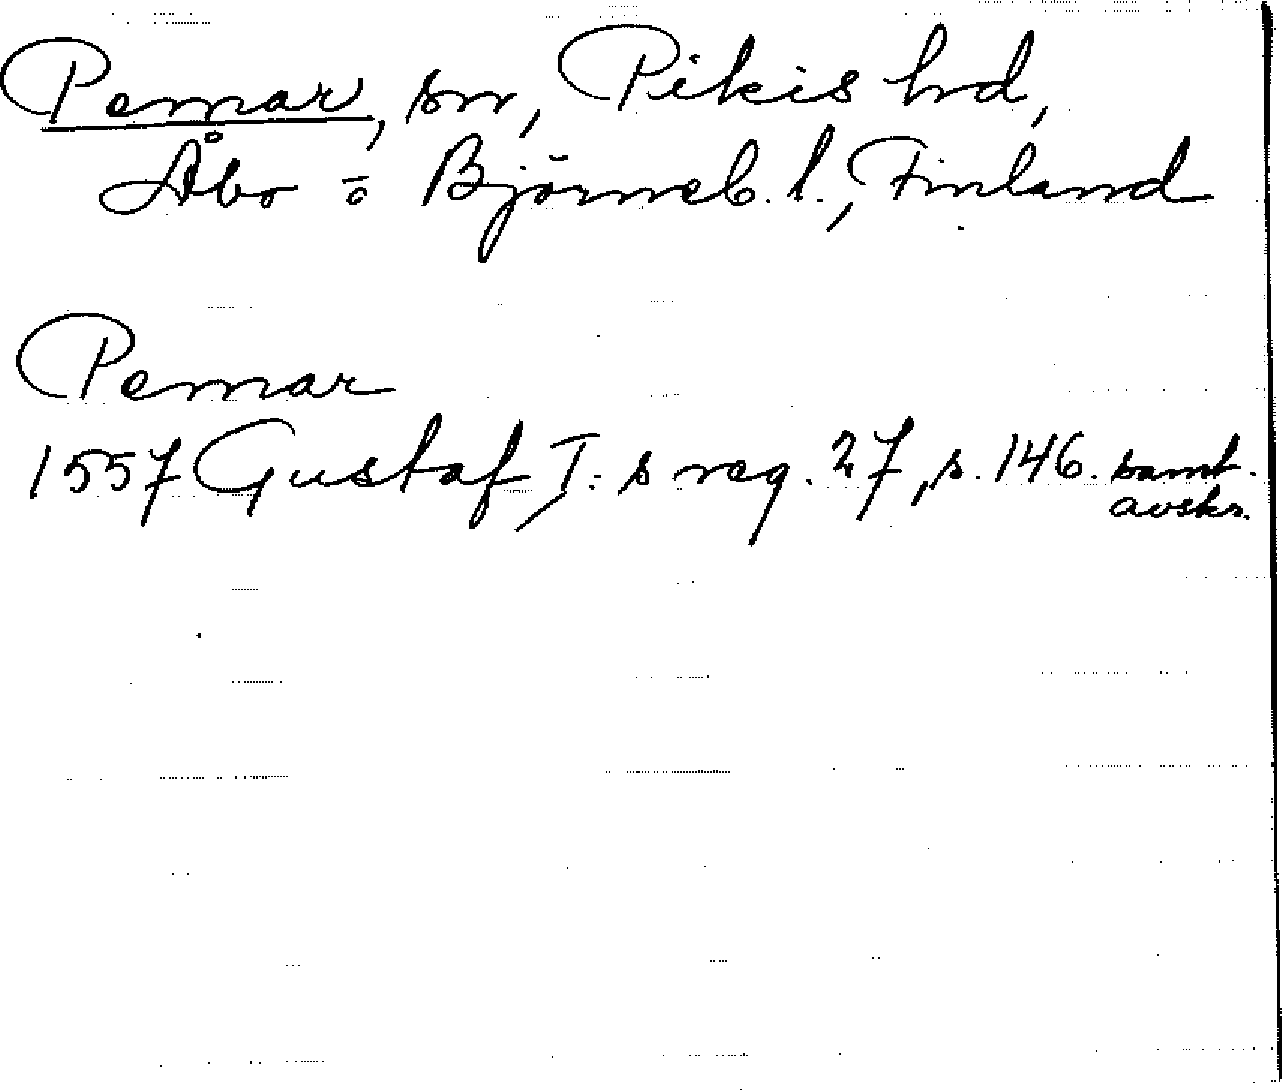 Pemar, sn, Pikis hrd,
Åbo o Björneb. l., Finland
Pemar
1557 Gustaf I:s reg. 27, s. 146. samt.
avskr.